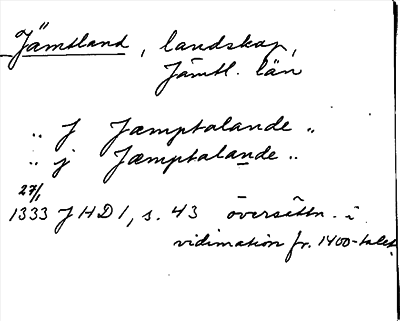 Jämtland, landskap,
Jämtl. län
.. J Jæmptalande ..
.. j Jæmptalande ..
27/1
1333 JHD 1, s. 43 översättn. i
vidimation fr. 1400-talet.